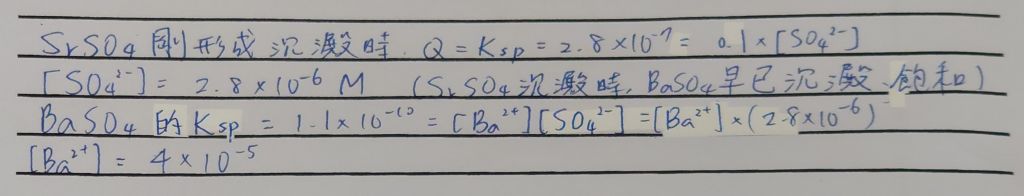 SrSO4 剛形成沉澱時. Q = Ksp = 2.8×10⁻⁷ = 0.1×[SO4²⁻]
[SO4²⁻] = 2.8×10⁻⁶ M (SrSO4沉澱時, BaSO4早已沉澱、飽和)
BaSO4 的 Ksp = 1.1×10⁻¹⁰ = [Ba²⁺][SO4²⁻] = [Ba²⁺]×(2.8×10⁻⁶)
[Ba²⁺] = 4×10⁻⁵